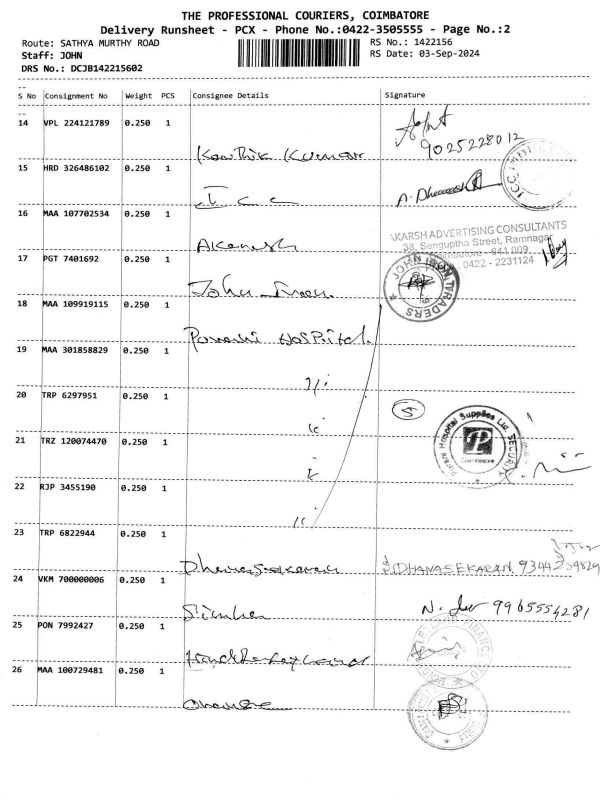 THE PROFESSIONAL COURIERS, COIMBATORE
Delivery Runsheet - PCX - Phone No.:0422-3505555 - Page No.:2
Route: SATHYA MURTHY ROAD
RS No.: 1422156
Staff: JOHN
RS Date: 03-Sep-2024
DRS No.: DCJB142215602
S No Consignment No Weight PCS Consignee Details Signature
14 VPL 224121789 0.250 1
9025228012
Karthik Kumar
15 HRD 326486102 0.250 1
I c c
A. Dhanaseh
16 MAA 107702534 0.250 1
Akarsh
AKARSH ADVERTISING CONSULTANTS
38, Senguptha Street, Ramnagar
Coimbatore - 641 009
0422 - 2231124
17 PGT 7401692 0.250 1
John Iron
JOHN IRON TRADERS
18 MAA 109919115 0.250 1
Hospital
19 MAA 301858829 0.250 1
20 TRP 6297951 0.250 1
5
21 TRZ 120074470 0.250 1
Hospital Supplies Ltd. SECURITY
Coimbatore
22 RJP 3455190 0.250 1
23 TRP 6822944 0.250 1
Dhanasekaran
DHANASEKARAN
24 VKM 700000006 0.250 1
Simha
9965554281
25 PON 7992427 0.250 1
26 MAA 100729481 0.250 1